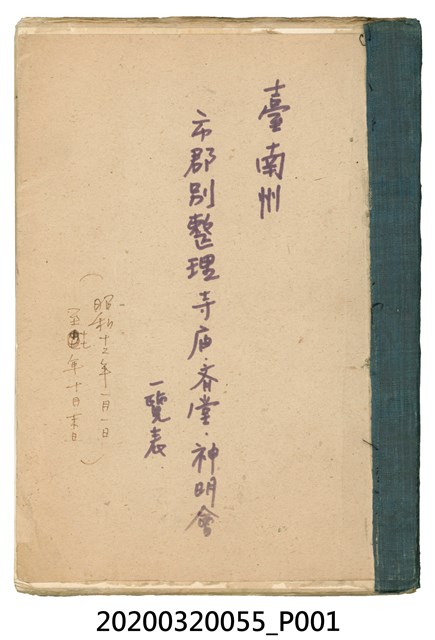 臺南州
市郡別整理寺庙.斉堂.神明會
一覽表
(昭和十二年一月一日
至 年十月末日)
20200320055_P001